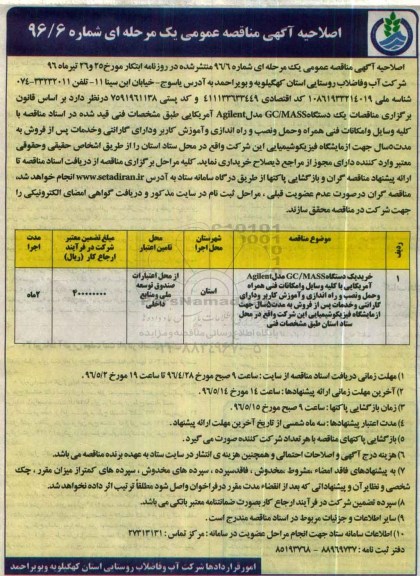 اصلاحیه آگهی مناقصه عمومی یک مرحله ای شماره ۹۶/۶
اصلاحیه آگهی مناقصه عمومی یک مرحله ای شماره ۹۶/۶ منتشر شده در روزنامه ابتکار مورخ ۲۵ و ۲۶ تیر ماه ۹۶
شرکت آب و فاضلاب روستایی استان کهگیلویه و بویراحمد به آدرس یاسوج - خیابان ابن سینا ۱۱- تلفن ۳۳۲۳۲۰۱۱-۰۷۴
شناسه ملی ۱۰۸۶۱۹۳۳۴۱۴۰۱۹ کد اقتصادی ۴۱۱۱۳۳۶۳۳۴۴۹ و کد پستی ۷۵۹۱۹۶۱۱۳۸ درنظر دارد بر اساس قانون
برگزاری مناقصات یک دستگاه GC/MASS مدل Agilent آمریکایی طبق مشخصات فنی قید شده در اسناد مناقصه با
کلیه وسایل وامکانات فنی همراه وحمل ونصب و راه اندازی وآموزش کاربر ودارای گارانتی وخدمات پس از فروش به
مدت ۵سال جهت آزمایشگاه فیزیکوشیمیایی این شرکت واقع در محل ستاد استان را از طریق اشخاص حقیقی وحقوقی
معتبر وارد کننده دارای مجوز از مراجع ذیصلاح خریداری نماید. کلیه مراحل برگزاری مناقصه از دریافت اسناد مناقصه تا
ارائه پیشنهاد مناقصه گران و بازگشایی پاکتها از طریق درگاه سامانه ستاد به آدرس www.setadiran.ir انجام خواهد شد،
مناقصه گران درصورت عدم عضویت قبلی ، مراحل ثبت نام در سایت مذکور و دریافت گواهی امضای الکترونیکی را
جهت شرکت در مناقصه محقق سازند.
ردیف | موضوع مناقصه | شهرستان محل اجرا | محل تامین اعتبار | مبلغ تضمین معتبر شرکت در فرآیند ارجاع کار (ریال) | مدت اجرا
۱ | خرید یک دستگاه GC/MASS مدل Agilent
آمریکایی با کلیه وسایل وامکانات فنی همراه
وحمل ونصب و راه اندازی و آموزش کاربر ودارای
گارانتی وخدمات پس از فروش به مدت ۵سال جهت
آزمایشگاه فیزیکوشیمیایی این شرکت واقع در محل
ستاد استان طبق مشخصات فنی | استان | از محل اعتبارات صندوق توسعه ملی ومنابع داخلی | ۴۰۰۰۰۰۰۰۰ | ۲ماه
۱) مهلت زمانی دریافت اسناد مناقصه از سایت : ساعت ۹ صبح مورخ ۹۶/۴/۲۸ تا ساعت ۱۹ مورخ ۹۶/۵/۲.
۲) آخرین مهلت زمانی ارائه پیشنهادها : ساعت ۱۴ مورخ ۹۶/۵/۱۴
۳) زمان بازگشایی پاکتها : ساعت ۹ صبح مورخ ۹۶/۵/۱۵
۴) مدت اعتبار پیشنهادها : سه ماه شمسی از تاریخ آخرین مهلت ارائه پیشنهاد.
۵) بازگشایی پاکتهای مناقصه با هر تعداد شرکت کننده صورت می گیرد.
۶) هزینه درج آگهی و اصلاحات احتمالی و همچنین هزینه ی انتشار در سایت ستاد به عهده برنده مناقصه می باشد.
۷) به پیشنهادهای فاقد امضاء مشروط ،مخدوش ، فاقدسپرده ، سپرده های مخدوش ، سپرده های کمتر از میزان مقرر ، چک
شخصی و نظایر آن و پیشنهاداتی که بعد از انقضاء مدت مقرر در فراخوان واصل شود مطلقاً ترتیب اثر داده نخواهد شد.
۸) سپرده تضمین شرکت در فرآیند ارجاع کار بصورت ضمانتنامه معتبر بانکی می باشد.
۹) سایر اطلاعات و جزئیات مربوط در اسناد مناقصه مندرج است.
۱۰) اطلاعات سامانه ستاد جهت انجام مراحل عضویت در سامانه : مرکز تماس : ۲۷۳۱۳۱۳۱
دفتر ثبت نامه : ۸۸۹۶۹۷۳۷ - ۸۵۱۹۳۷۶۸
امور قراردادها شرکت آب وفاضلاب روستایی استان کهگیلویه وبویراحمد